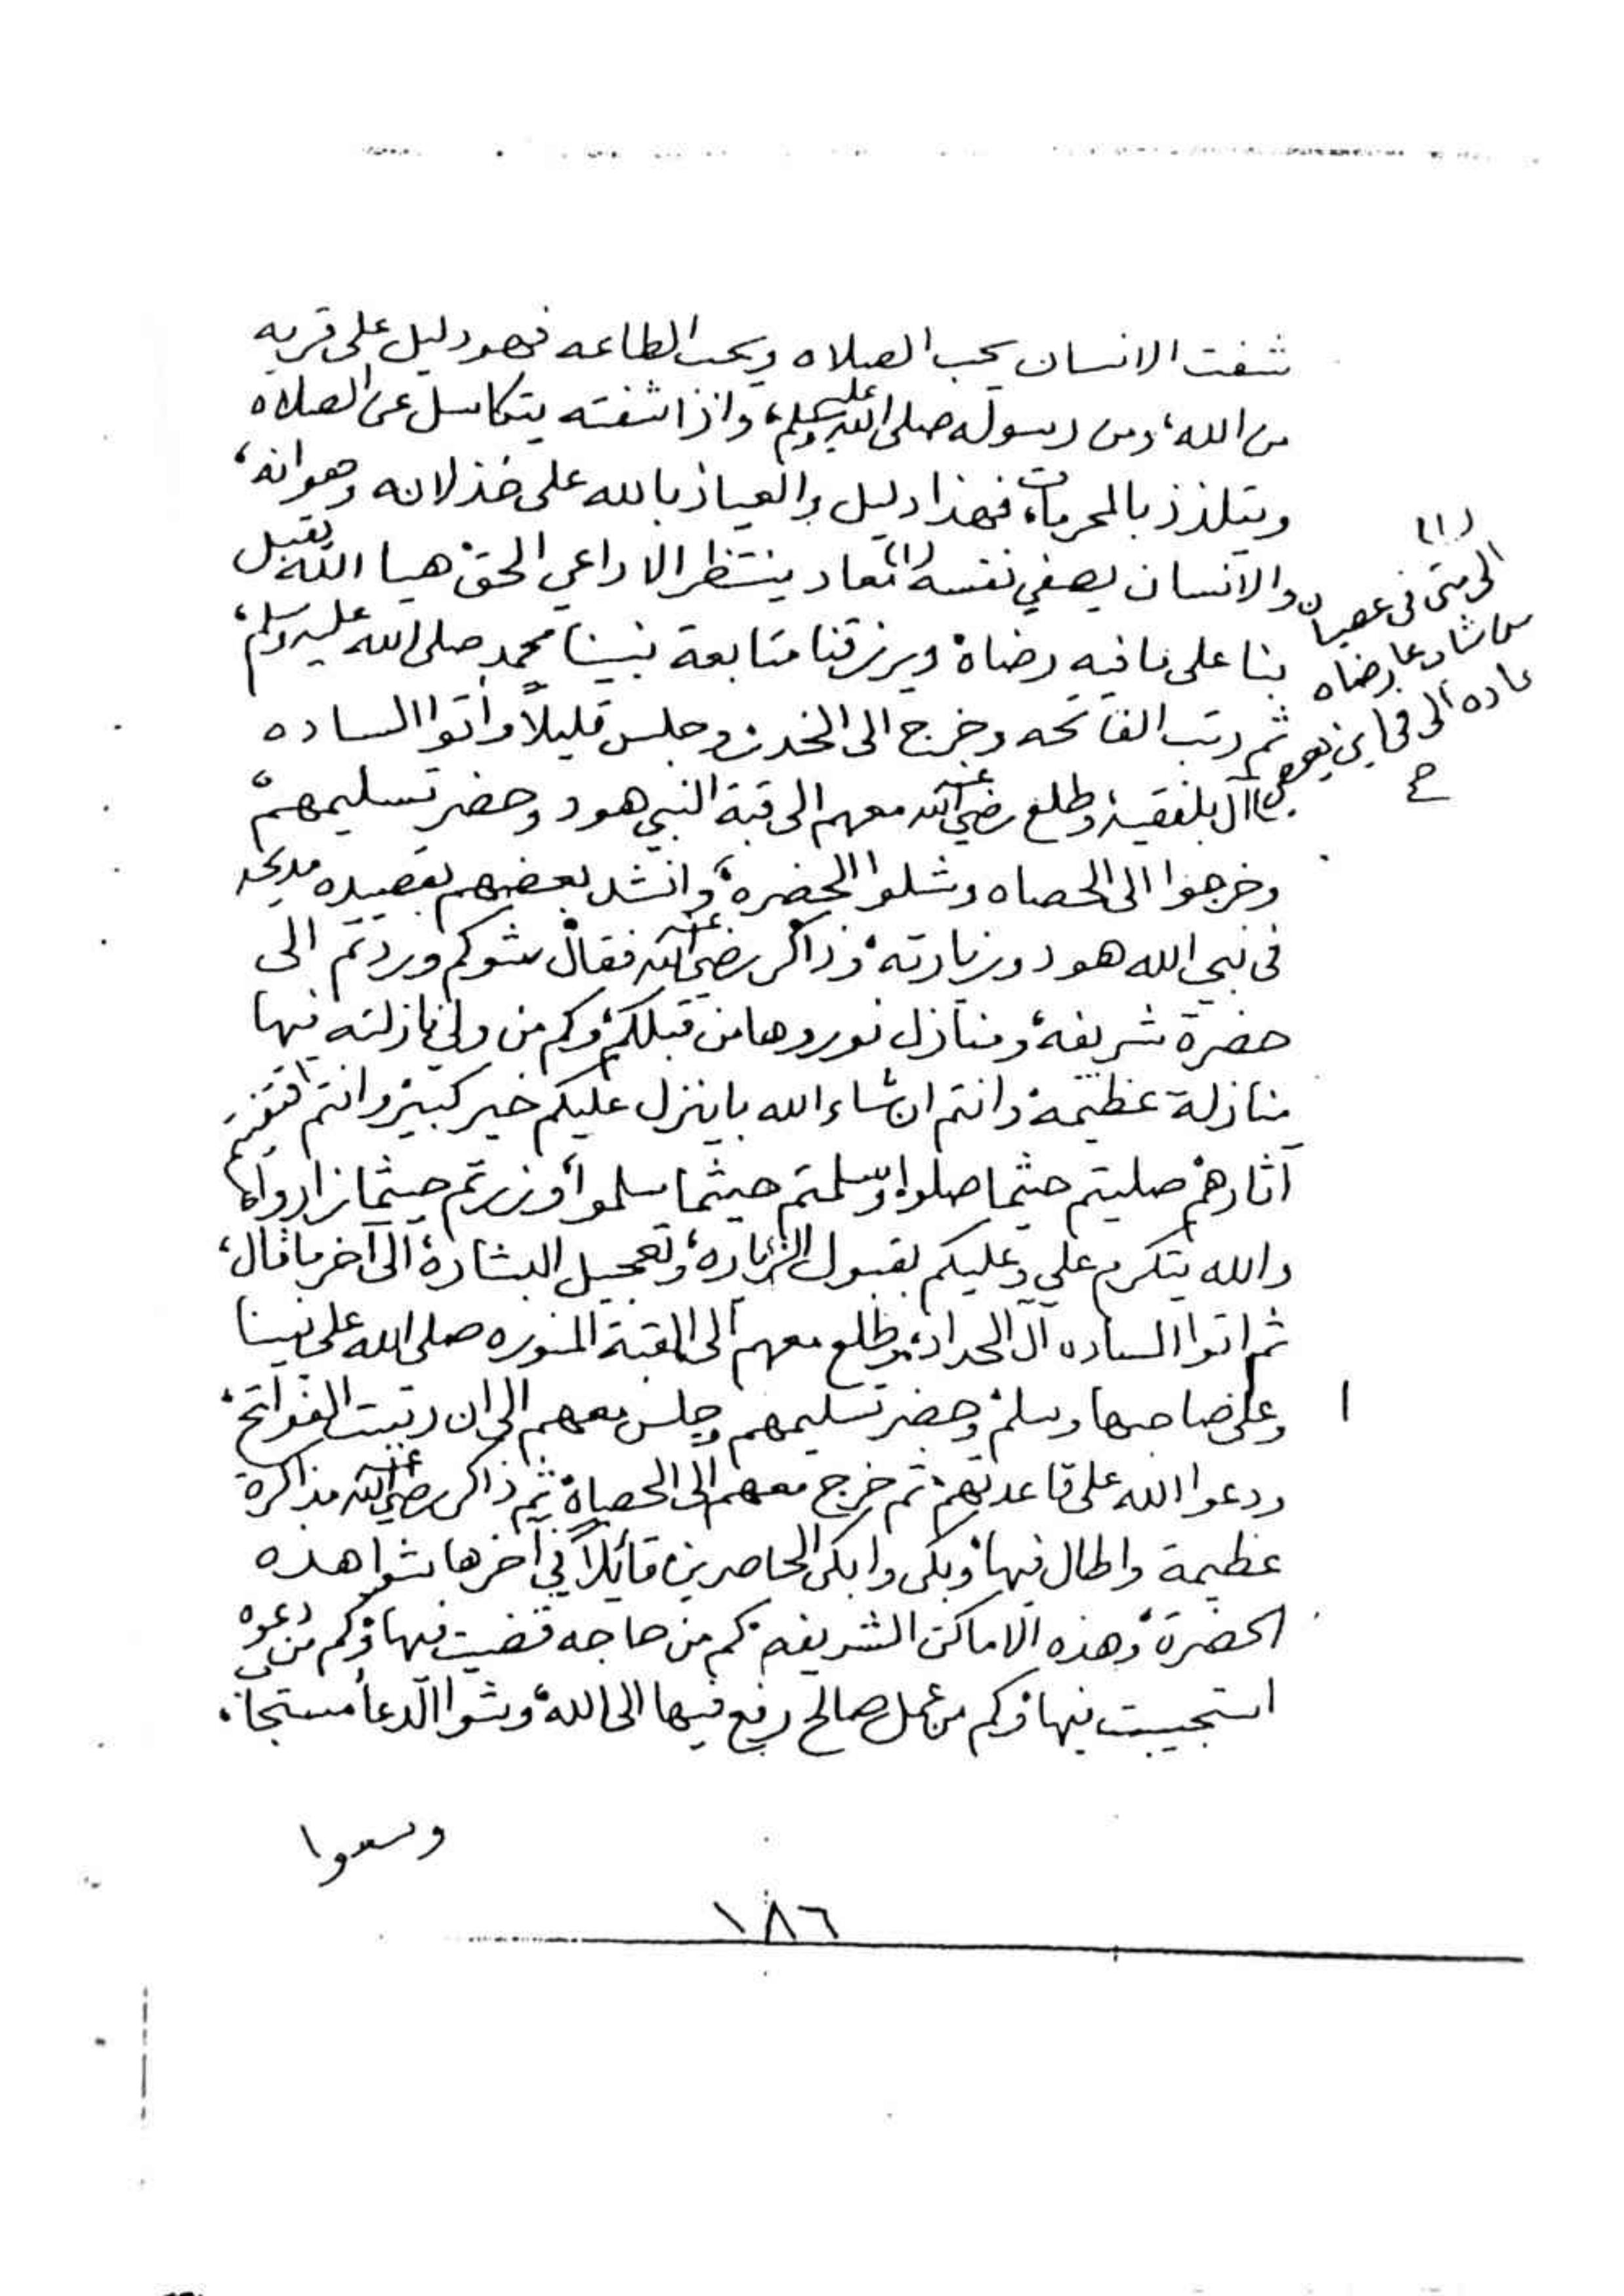 شفت الانسان يحب الصلاه ويحب الطاعه فهو دليل على قربه
من الله، ومن رسوله صلى الله عليه وسلم، واذا شفته يتكاسل عن الصلاه
ويتلذذ بالمحرمات، فهذا دليل والعياذ بالله على خذلانه وهوانه،
والانسان يصفي نفسه (١) ماعاد ينتظر الا داعي الحق، هيا الله يقبل
بنا على ما فيه رضاه، ويرزقنا متابعة نبينا محمد صلى الله عليه وسلم،
ثم رتب الفاتحه وخرج الى الخدر، وجلس قليلاً، وأتوا الساده
آل بلفقيه، وطلع رضي الله عنه معهم الى قبة النبي هود وحضر تسليمهم،
وخرجوا الى الحصاه وشلوا الحضرة، وانشد بعضهم بقصيده مديحه
في نبي الله هود وزيارته، وذاكر رضي الله عنه فقال شوكم وردتم الى
حضرة شريفة، ومنازل نوروها من قبلكم، وكم من ولي نازلته فيها
منازلة عظيمة، وانتم ان شاء الله باينزل عليكم خير كبير، وانتم اقتفيتم
آثارهم، صليتم حيثما صلوا، وسلمتم حيثما سلموا، وزرتم حيثما زاروا،
والله يتكرم علي وعليكم بقبول الزياره، وتعجيل البشارة، الى آخر ما قال،
ثم اتوا الساده آل الحداد، وطلع معهم الى القبة المنوره صلى الله على نبينا
وعلى صاحبها وسلم، وحضر تسليمهم وجلس معهم الى ان رتبت الفواتح،
ودعوا الله على قاعدتهم، ثم خرج معهم الى الحصاة، ثم ذاكر رضي الله عنه مذاكرة
عظيمة واطال فيها، وبكى وابكى الحاضرين، قائلاً في آخرها شوا هذه
الحضرة، وهذه الاماكن الشريفه، كم من حاجه قضيت فيها، وكم من دعوه
استجيبت فيها، وكم من عمل صالح رفع فيها الى الله، وشوا الدعاء مستجاب،
وسعوا
(١)
الى متى في عصيان
رضاه
ح
١٨٦